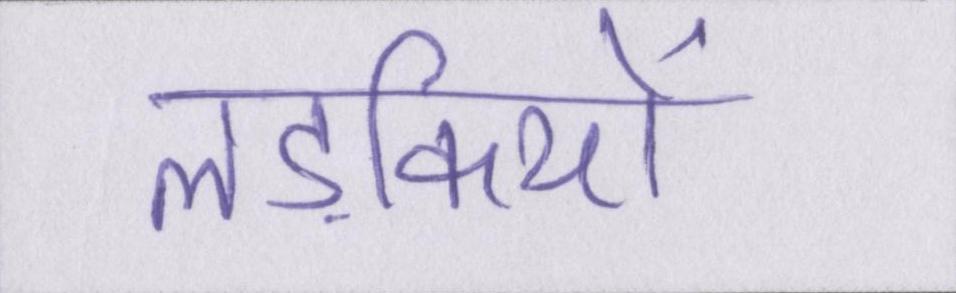 लड़कियों